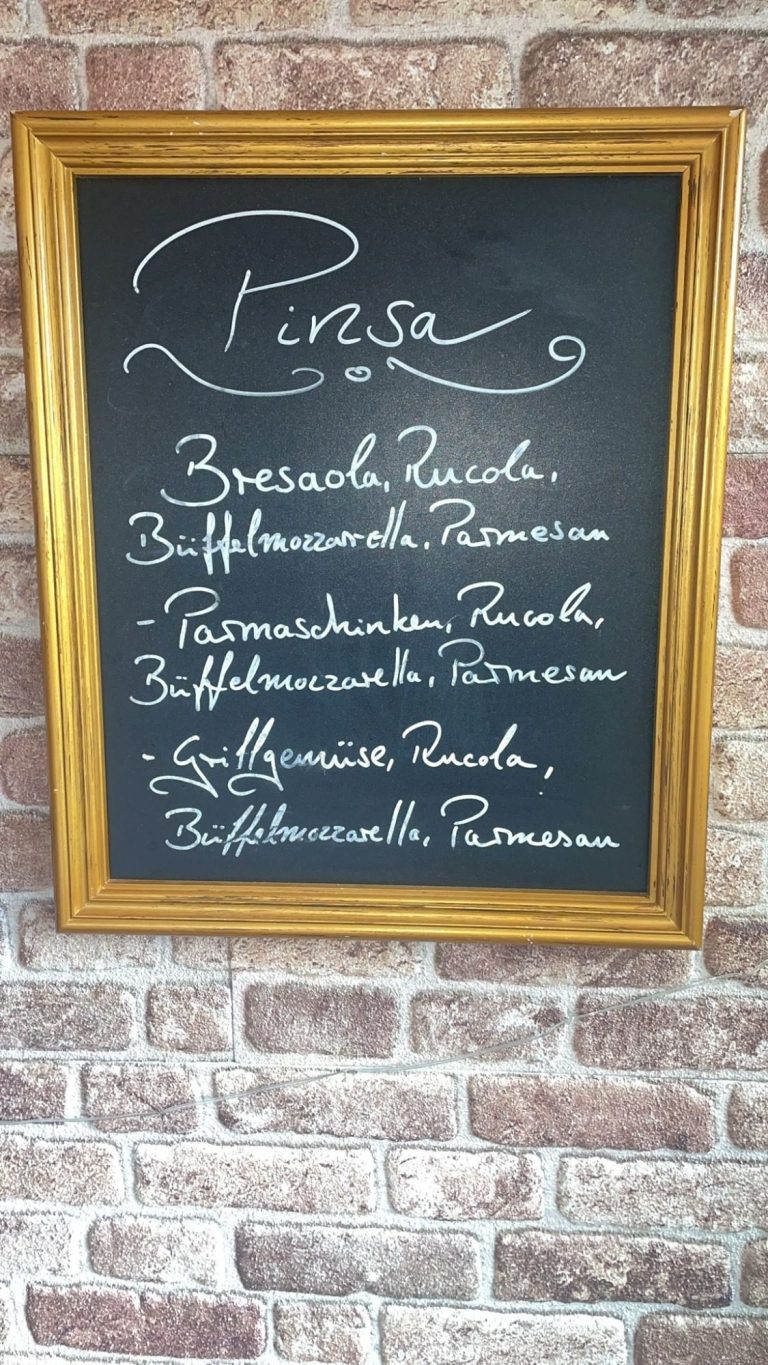 Pinsa
Bresaola, Rucola,
Büffelmozzarella, Parmesan
- Parmaschinken, Rucola,
Büffelmozzarella, Parmesan
- Grillgemüse, Rucola,
Büffelmozzarella, Parmesan